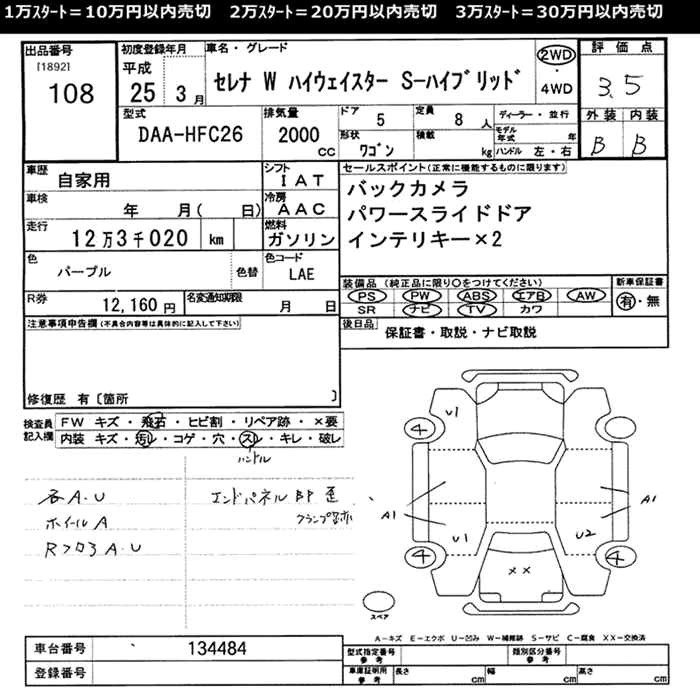 1万スタート＝10万円以内売切　2万スタート＝20万円以内売切　3万スタート＝30万円以内売切
出品番号
[1892]
108
初度登録年月
平成
25 3 月
車名・グレード
セレナ W ハイウェイスター S-ハイブリッド
2WD
・
4WD
評価点
3.5
外装 内装
B B
型式
DAA-HFC26
排気量
2000
cc
ドア 5
定員 8 人
形状 ワゴン
積載 kg
ディーラー・並行
モデル年式 年
ハンドル 左・右
車歴
自家用
車検
年 月( 日)
走行
12万3千020 km
色
パープル
色替
シフト
IAT
冷房
AAC
燃料
ガソリン
色コード
LAE
セールスポイント(正常に機能するものに限ります)
バックカメラ
パワースライドドア
インテリキー×2
R券
12,160 円
名変通知期限
月 日
装備品 (純正品に限り○をつけてください)
PS PW ABS エアB AW
SR ナビ TV カワ
新車保証書
有・無
後日品
保証書・取説・ナビ取説
注意事項申告欄(不具合内容等は具体的に記入して下さい)
修復歴 有〔箇所 〕
検査員
記入欄
FW キズ ・ 飛石 ・ ヒビ割 ・ リペア跡 ・ ×要
内装 キズ ・ 汚レ ・ コゲ ・ 穴 ・ スレ ・ キレ ・ 破レ
ハンドル
各A.U
ホイールA
エンドパネル
U1
4
4
A1
A1
U1
U2
××
4
4
スペア
A－キズ E－エクボ U－凹み W－補修跡 S－サビ C－腐食 XX－交換済
車台番号
134484
登録番号
型式指定番号
参考
類別区分番号
参考
車庫証明用
参考
長さ cm
幅 cm
高さ cm